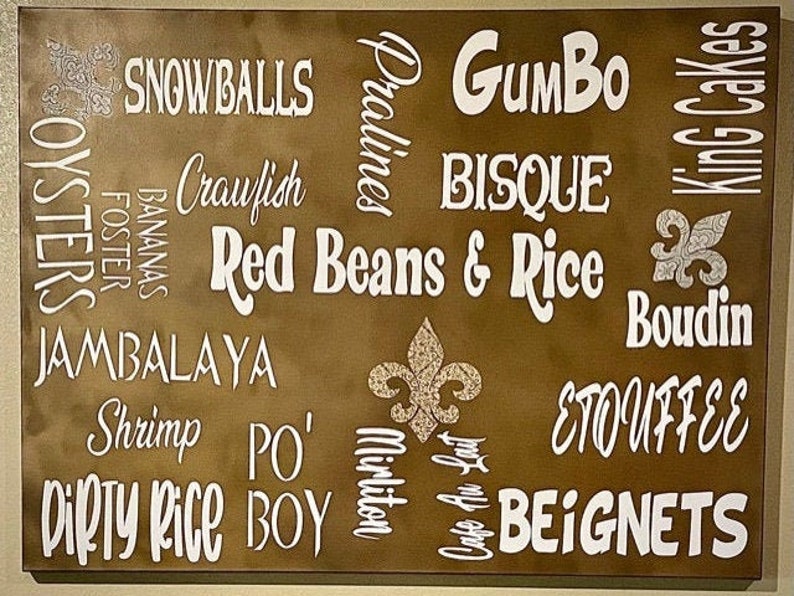 SNOWBALLS
Pralines
GumBo
KinG CaKes
OYSTERS
BANANAS
FOSTER
Crawfish
BISQUE
Red Beans & Rice
Boudin
JAMBALAYA
Shrimp
PO'
BOY
Mirliton
Cafe Au Lait
ETOUFFEE
DiRTY RiCE
BEiGNETS